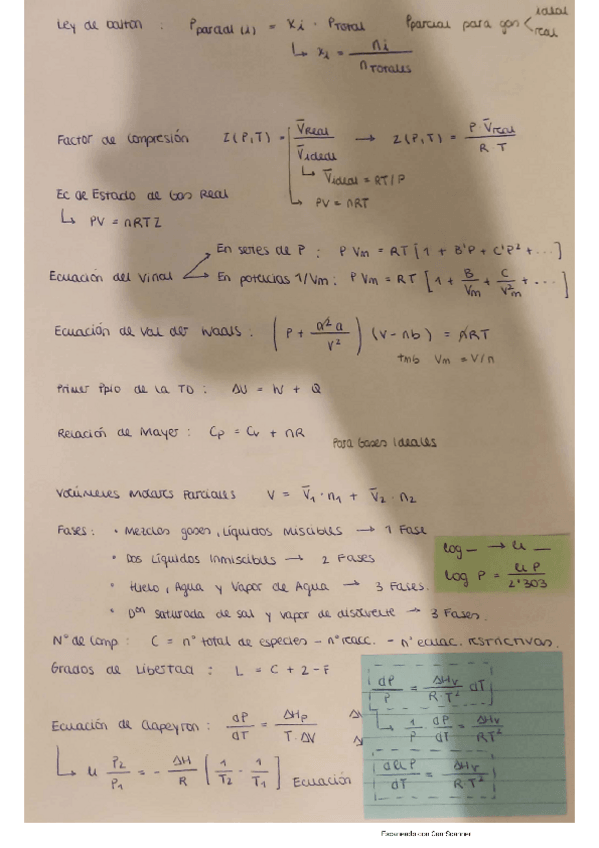 Ley de Dalton : Pparcial (i) = Xi · Ptotal   Pparcial para gas < ideal real
↳ xi = ni / ntotales
Factor de compresión   Z(P,T) = V̅real / V̅ideal → Z(P,T) = P·V̅real / R·T
↳ V̅ideal = RT/P
Ec de Estado de Gas Real   ↳ PV = nRT
↳ PV = nRTZ
Ecuación del Virial   En series de P : P Vm = RT [1 + B'P + C'P² + ...]
En potencias 1/Vm : P Vm = RT [1 + B/Vm + C/V²m + ...]
Ecuación de Van der Waals : (P + n²a / V²) (V - nb) = nRT
tmb Vm = V/n
Primer Ppio de la TD : ΔU = W + Q
Relación de Mayer : Cp = Cv + nR   Para Gases Ideales
Volúmenes Molares Parciales   V = V̅1 · n1 + V̅2 · n2
Fases : • Mezclas gases, líquidos miscibles → 1 Fase
• Dos líquidos inmiscibles → 2 Fases
log _ → ln _
log P = ln P / 2'303
• Hielo, Agua y Vapor de Agua → 3 Fases.
• Dºn saturada de sal y vapor de disolvente → 3 Fases.
Nº de Comp : C = nº total de especies - nº reacc. - nº ecuac. restrictivas.
Grados de Libertad : L = C + 2 - F
dP / P = ΔHv / R·T² dT
↳ 1/P · dP/dT = ΔHv / RT²
Ecuación de Clapeyron : dP/dT = ΔHp / T·ΔV
↳ ln P2/P1 = - ΔH/R [1/T2 - 1/T1]   Ecuación
d ln P / dT = ΔHv / R·T²
Escaneado con CamScanner